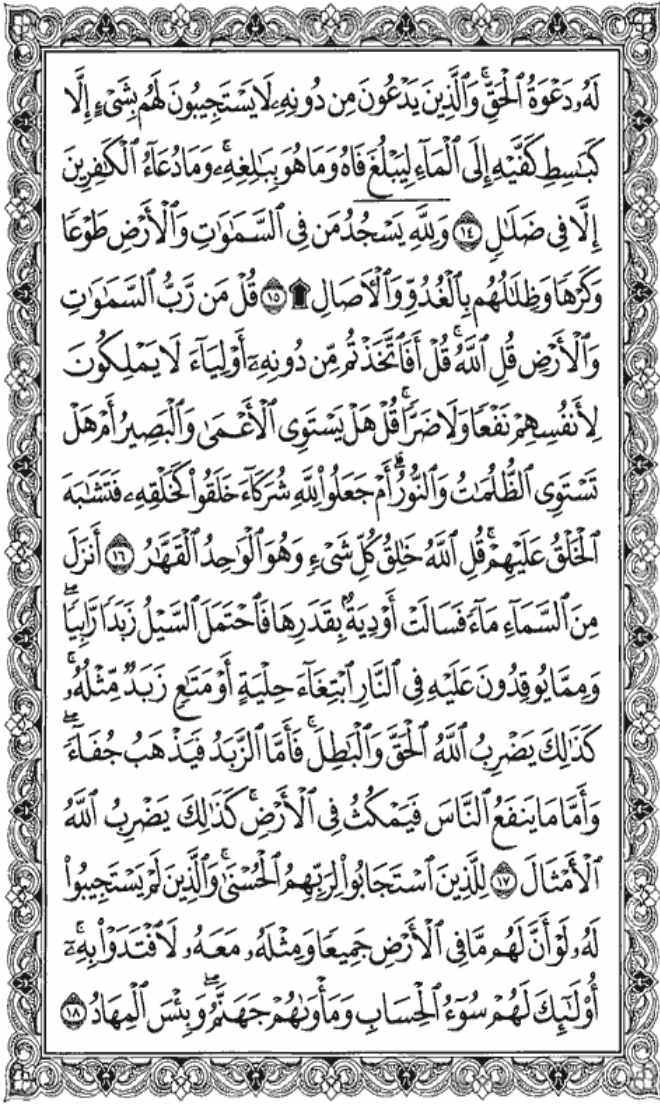 لَهُۥ دَعْوَةُ ٱلْحَقِّ ۖ وَٱلَّذِينَ يَدْعُونَ مِن دُونِهِۦ لَا يَسْتَجِيبُونَ لَهُم بِشَىْءٍ إِلَّا
كَبَـٰسِطِ كَفَّيْهِ إِلَى ٱلْمَآءِ لِيَبْلُغَ فَاهُ وَمَا هُوَ بِبَـٰلِغِهِۦ ۚ وَمَا دُعَآءُ ٱلْكَـٰفِرِينَ
إِلَّا فِى ضَلَـٰلٍ ١٤ وَلِلَّهِ يَسْجُدُ مَن فِى ٱلسَّمَـٰوَٰتِ وَٱلْأَرْضِ طَوْعًا
وَكَرْهًا وَظِلَـٰلُهُم بِٱلْغُدُوِّ وَٱلْـَٔاصَالِ ۩ ١٥ قُلْ مَن رَّبُّ ٱلسَّمَـٰوَٰتِ
وَٱلْأَرْضِ قُلِ ٱللَّهُ ۚ قُلْ أَفَٱتَّخَذْتُم مِّن دُونِهِۦٓ أَوْلِيَآءَ لَا يَمْلِكُونَ
لِأَنفُسِهِمْ نَفْعًا وَلَا ضَرًّا ۚ قُلْ هَلْ يَسْتَوِى ٱلْأَعْمَىٰ وَٱلْبَصِيرُ أَمْ هَلْ
تَسْتَوِى ٱلظُّلُمَـٰتُ وَٱلنُّورُ ۗ أَمْ جَعَلُوا۟ لِلَّهِ شُرَكَآءَ خَلَقُوا۟ كَخَلْقِهِۦ فَتَشَـٰبَهَ
ٱلْخَلْقُ عَلَيْهِمْ ۚ قُلِ ٱللَّهُ خَـٰلِقُ كُلِّ شَىْءٍ وَهُوَ ٱلْوَٰحِدُ ٱلْقَهَّـٰرُ ١٦ أَنزَلَ
مِنَ ٱلسَّمَآءِ مَآءً فَسَالَتْ أَوْدِيَةٌۢ بِقَدَرِهَا فَٱحْتَمَلَ ٱلسَّيْلُ زَبَدًا رَّابِيًا ۖ
وَمِمَّا يُوقِدُونَ عَلَيْهِ فِى ٱلنَّارِ ٱبْتِغَآءَ حِلْيَةٍ أَوْ مَتَـٰعٍ زَبَدٌ مِّثْلُهُۥ ۚ
كَذَٰلِكَ يَضْرِبُ ٱللَّهُ ٱلْحَقَّ وَٱلْبَـٰطِلَ ۚ فَأَمَّا ٱلزَّبَدُ فَيَذْهَبُ جُفَآءً ۖ
وَأَمَّا مَا يَنفَعُ ٱلنَّاسَ فَيَمْكُثُ فِى ٱلْأَرْضِ ۚ كَذَٰلِكَ يَضْرِبُ ٱللَّهُ
ٱلْأَمْثَالَ ١٧ لِلَّذِينَ ٱسْتَجَابُوا۟ لِرَبِّهِمُ ٱلْحُسْنَىٰ ۚ وَٱلَّذِينَ لَمْ يَسْتَجِيبُوا۟
لَهُۥ لَوْ أَنَّ لَهُم مَّا فِى ٱلْأَرْضِ جَمِيعًا وَمِثْلَهُۥ مَعَهُۥ لَٱفْتَدَوْا۟ بِهِۦٓ ۚ
أُو۟لَـٰٓئِكَ لَهُمْ سُوٓءُ ٱلْحِسَابِ وَمَأْوَىٰهُمْ جَهَنَّمُ ۖ وَبِئْسَ ٱلْمِهَادُ ١٨